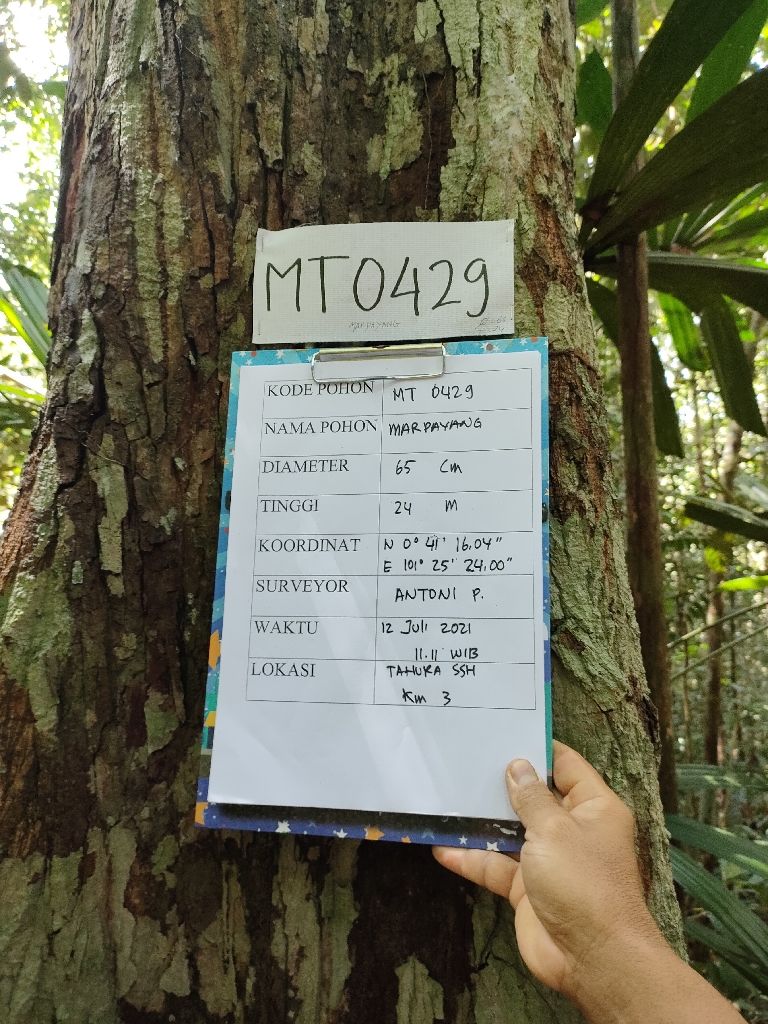 MT0429
MARPAYANG
KODE POHON MT 0429
NAMA POHON MARPAYANG
DIAMETER 65 Cm
TINGGI 24 M
KOORDINAT N 0° 41' 16.04"
E 101° 25' 24.00"
SURVEYOR ANTONI P.
WAKTU 12 Juli 2021
11.11 WIB
LOKASI TAHURA SSH
Km 3